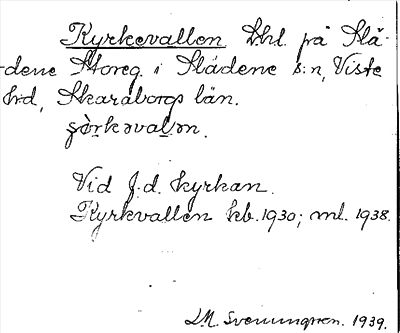 Kyrkevallen khl. på Slä-
dene Storeg. i Slädene s:n, Viste
hd, Skaraborgs län.
çòrkəvalən.
Vid f.d. kyrkan.
Kyrkvallen kb. 1930; ml. 1938.
L.M. Svenungsson. 1939.